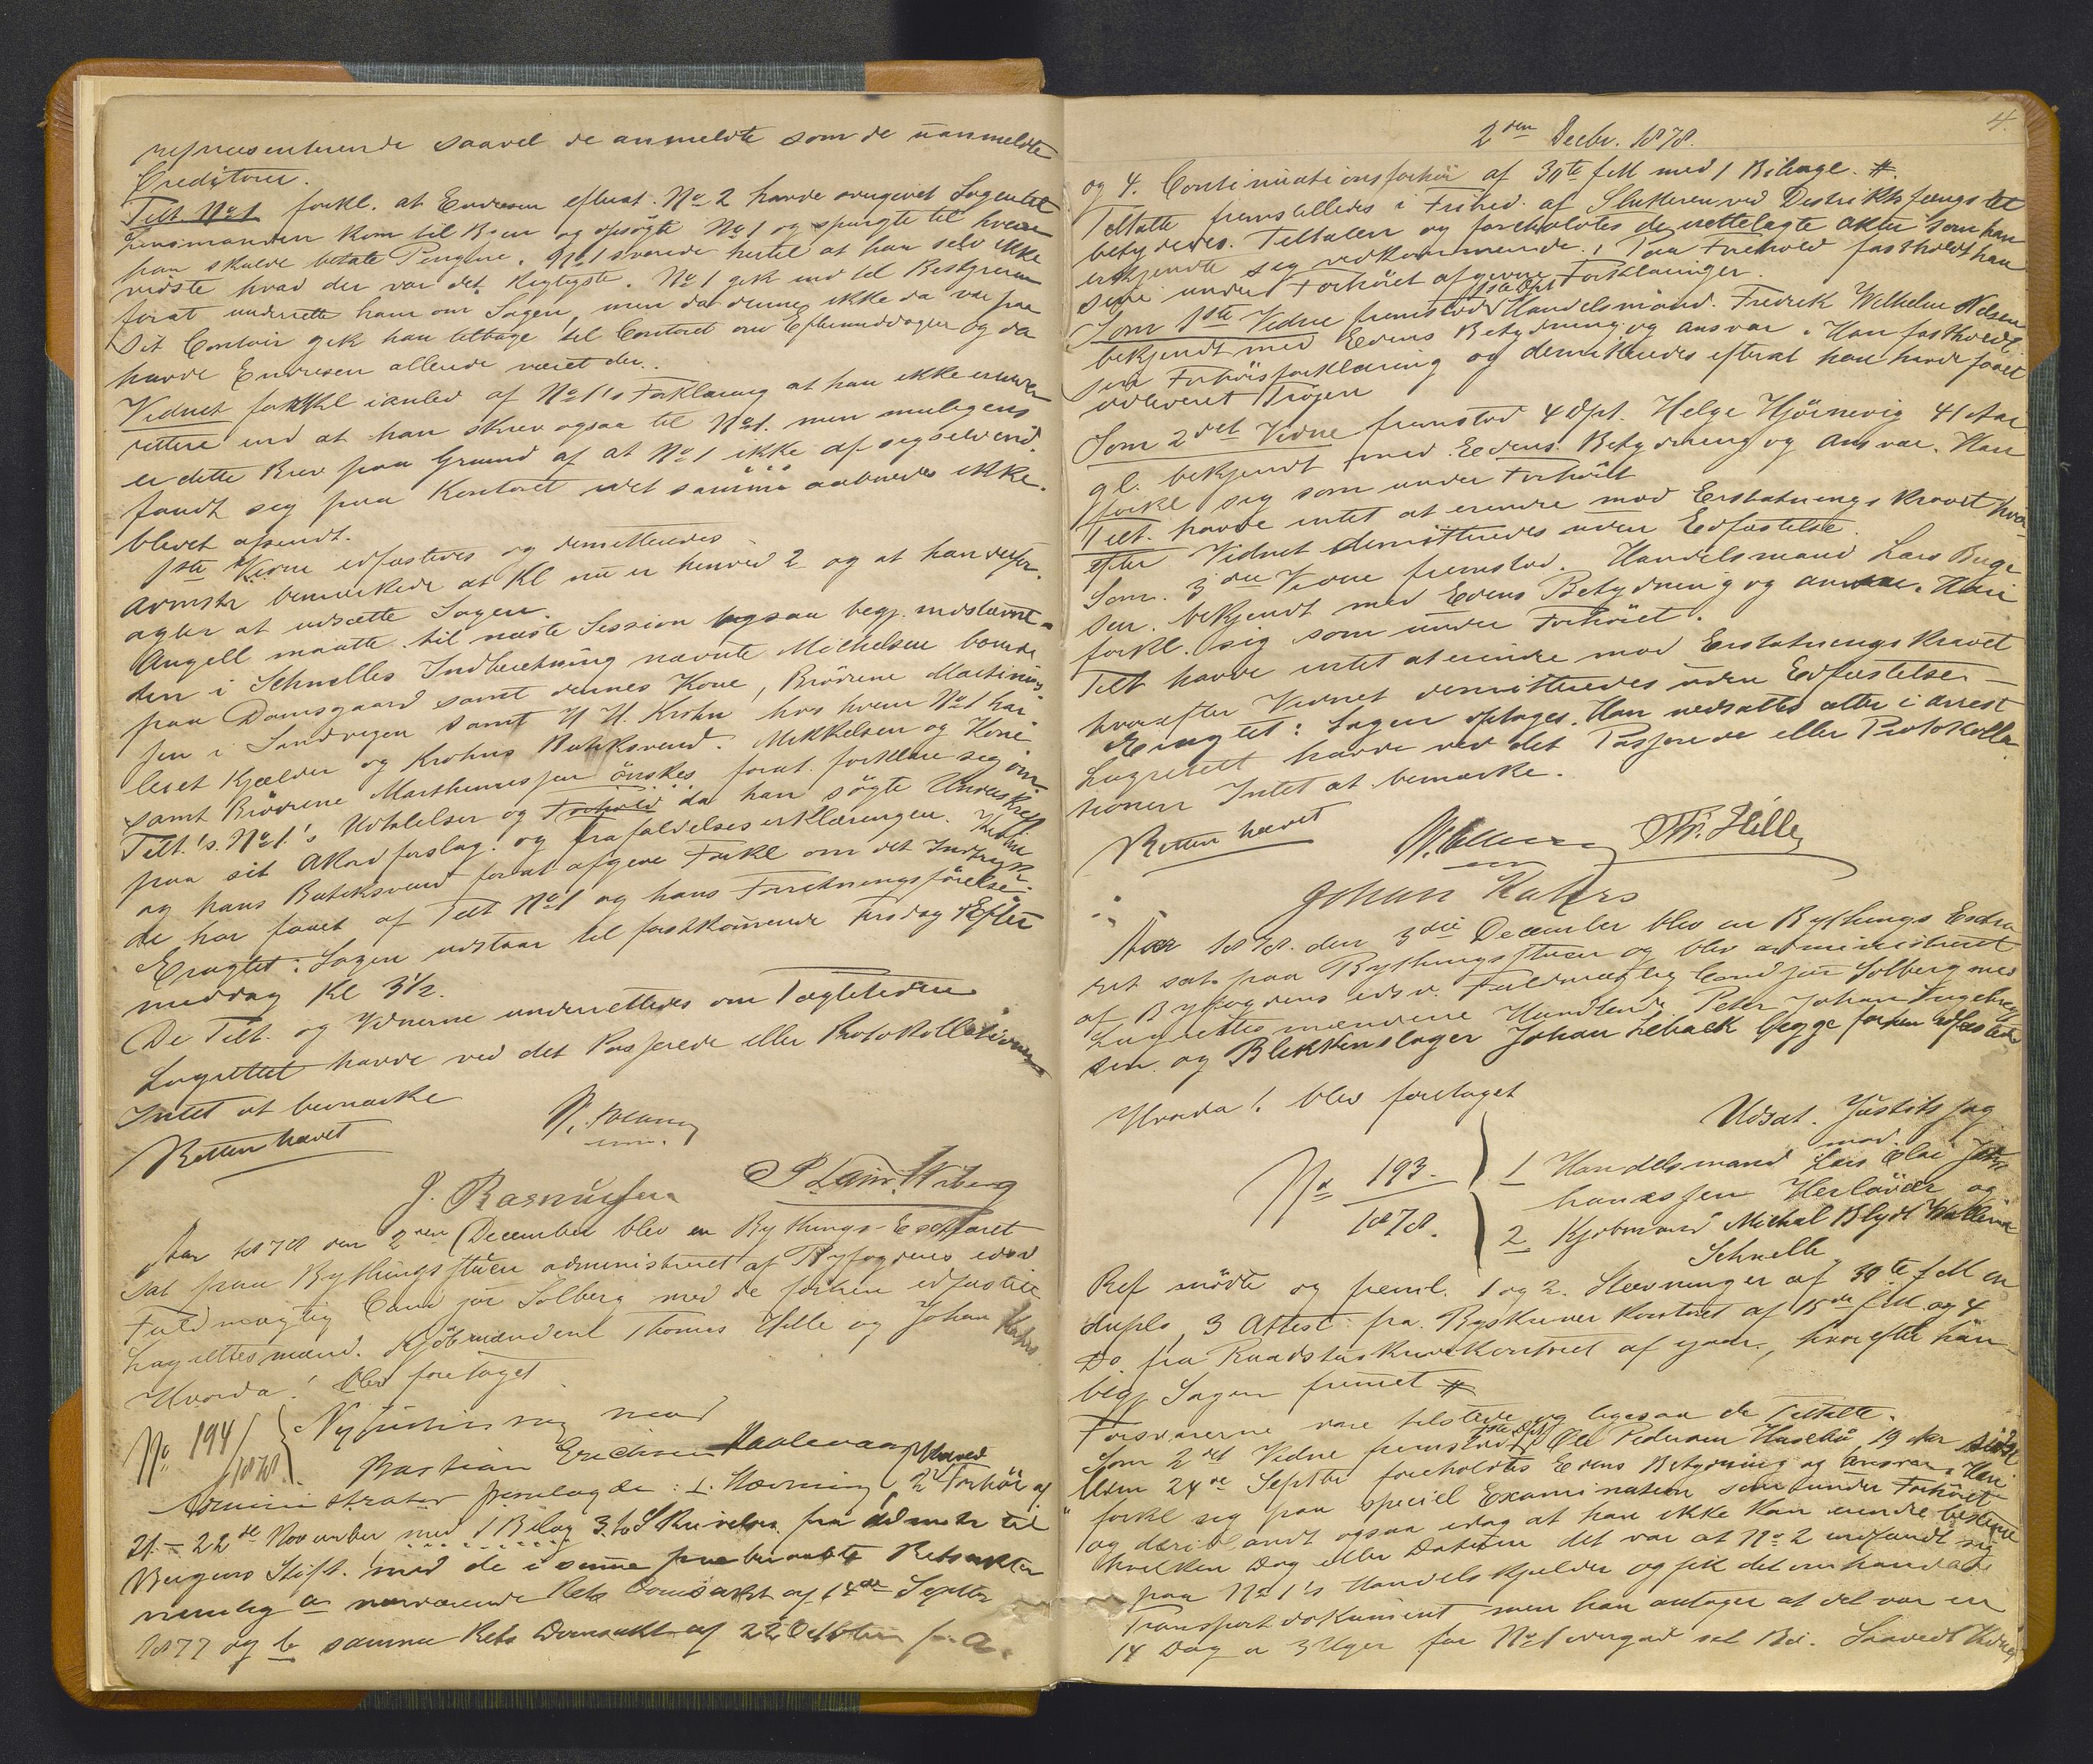 repræsenterende saavel de anmeldte som de uanmeldte
Creditorer.
Tilt No 1 forkl. at Endresen efterat No 2 havde overgivet Sagen til
Lensmanden kom til Byen og opsøgte No 1 og spurgte til hvem
han skulde betale Pengene. No 1 svarede hertil at han selv ikke
vidste hvad der var det Rigtigste. No 1 gik ind til Bestyreren
forat underrette ham om Sagen, men da denne ikke da var paa
sit Contoir gik han tilbage til Contoret om Eftermiddagen og da
havde Endresen allerede været der.
Vidnet forkl i anled af No 1's Forklaring at han ikke erindrer
rettere end at han skrev ogsaa til No 1. men muligens
er dette Brev paa Grund af at No 1 ikke af sig selv ind
fandt sig paa Kontoret idet samme aabnedes ikke
blevet afsendt.
1ste Vidne edfæstedes og demitteredes
Admstr bemærkede at Kl nu er henved 2 og at han derfor
agter at udsætte Sagen.
Angell maatte til næste Session ogsaa begj. indstævnt
den i Schnelles Indberetning nævnte Michelsen boende
paa Damsgaard samt dennes Kone, Brødrene Martinus-
sen i Sandvigen samt H. H. Krohn hos hvem No 1 har
leiet Kjælder og Krohns Butiksvend. Mikkelsen og Kone
samt Brødrene Marthinussen ønskes forat forklare sig om
Tilt.'s No 1's Udtalelser og Forhold da han søgte Underskrift
paa sit Akordforslag og Frafaldelseserklæringen. Krohn
og hans Butiksvend forat afgive Forkl om det Indtryk
de har faaet af Tilt No 1 og hans Forretningsførelse.
Eragtet: Sagen udstaar til førstkommende Tirsdag Efter
middag Kl 3½.
De Tilt. og Vidnerne underrettedes om Tægtetiden
Lagrettet havde ved det Passerede eller Protokollationen
Intet at bemærke
Retten hævet
J. Rasmussen
Aar 1878 den 2den December blev en Bythings-Extraret
sat paa Bythingsstuen administreret af Byfogdens edsv
Fuldmægtig Cand jur Solberg med de forhen edfæstede
Lagrettesmænd. Kjøbmændene Thomas Hille og Johan Kahrs
Hvorda! blev foretaget
No 194/1878. Ny Justitssag mod
Bastian Erichsen
Administrator fremlagde: 1. Stævning 2 Forhør af
21 - 22de November med 1 Bilag 3. Skrivelse fra Admstr til
Bergens Stift. med de i samme paaberaabte Retsakter
nemlig a nærværende Rets Domsakt af 14de Septbr
1877 og b samme Rets Domsakt af 22 Oktober f. A.
4.
2den Decbr. 1878.
og 4. Continuationsforhør af 30te f.M. med 1 Bilage. #.
Tiltalte fremstilledes i Frihed af Slutteren ved Distriktsfængslet
betydedes Tiltalen og foreholdtes de rettelagte akter som han
erkjendte sig vedkommende. Paa Forehold fastholdt han
sine under Forhøret afgivne Forklaringer.
Som 1ste Vidne fremstod 1ste Opt Handelsmand Fredrik Wilhelm Nilsen
bekjendt med Edens Betydning og ansvar. Han fastholdt
sin Forhørsforklaring og demitteredes efterat han havde faaet
udleveret Trøjen
Som 2det Vidne fremstod 4 Opt. Helge Hjørnevig 41 Aar
gl. bekjendt med Edens Betydning og Ansvar. Han
forkl sig som under Forhøret
Tilt. havde intet at erindre mod Erstatningskravet hvor-
efter Vidnet demitteredes uden Edfæstelse.
Som. 3die Vidne fremstod. Handelsmand Lars Buge
sen. bekjendt med Edens Betydning og ansvar. Han
forkl. sig som under Forhøret.
Tilt havde intet at erindre mod Erstatningskravet
hvorefter Vidnet demitteredes uden Edfæstelse -
Eragtet: Sagen optages. Han nedsattes atter i arrest
Lagrettet havde ved det Passerede eller Protokolla-
tionen Intet at bemærke.
Retten hævet
Th. Hille
Johan Kahrs
Aar 1878. den 3die December blev en Bythings Extra
ret sat paa Bythingsstuen og blev administreret
af Byfogdens edsv. Fuldmægtig Cand jur Solberg med
Lagrettesmændene Handlende Peter Johan Ingebrigt
sen og Blikkenslager Johan Leback begge forhen edfæstede
Hvorda! blev foretaget
Udsat. Justitssag
mod.
No 193. / 1878.
1 Handelsmand Lars Elai Jo-
hannessen Herløvær og
2 Kjøbmand Michal Blydt
Schnelle
Ref mødte og freml. 1 og 2. Stævninger af 30te f.M. in
duplo, 3 Attest fra Byskriver Kontoret af 15de f.M. og 4
Do. fra Raadstueskriverkontoret af gaar, hvorefter han
begj. Sagen fremet #
Forsvarerne vare tilstede og ligesaa de Tiltalte.
Som 2det Vidne fremstod 1ste Opt Ole Pedersen 19 Aar sidst-
leden 24de Septbr foreholdtes Edens Betydning og Ansvar. Han
forkl sig paa speciel Examination som under Forhøret
og deriblandt ogsaa idag at han ikke kan erindre bestemt
hvilken Dag eller Datum det var at No 2 indfandt sig
paa No 1's Handelskjelder og fik det omhandlede
Transportdokument, men han antager at det var en
14 Dag a 3 Uger før No 1 overgav sit Bo. Saavidt Vidnet